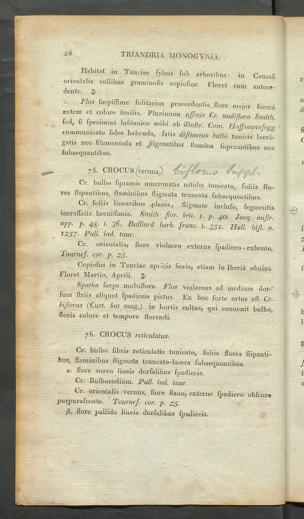 28 TRIANDRIA MONOGYNIA.
Habitat in Tauriae sylvis sub arboribus: in Caucasi
orientalis collibus graminosis copiosior. Floret cum antece-
dente. ♃
Flos saepissime solitarius praecedentis flore major forma
autem et colore similis. Plurimum affinis Cr. nudifloro Smith.
sed, si specimini lusitanico mihi ab illustr. Com. Hoffmannsegg
communicato fides habenda, satis distinctus bulbi tunicis laevi-
gatis nec filamentosis et stigmatibus stamina superantibus nec
subaequantibus.
75. CROCUS (vernus.) biflorus Suppl.
Cr. bulbo squamis mucronatis nitidis tunicato, foliis flo-
res stipantibus, staminibus stigmata truncata subaequantibus.
Cr. foliis linearibus planis, stigmate incluso, segmentis
incrassatis brevissimis. Smith flor. brit. 1. p. 40. Jacq. austr.
app. p. 48. t. 36. Bulliard herb. franc. t. 351. Hall. hist. n.
1257. Pall. ind. taur.
Cr. orientalis, flore violaceo externe spadiceo-rubente.
Tournef. cor. p. 25.
Copiosus in Tauriae apricis siccis, etiam in Iberia obuius.
Floret Martio, Aprili. ♃
Spatha saepe multiflora. Flos violaceus ad medium dor-
sum striis aliquot spadiceis pictus. Ex hoc forte ortus est Cr.
biflorus (Curt. bot mag.) in hortis cultus, qui convenit bulbo,
floris colore et tempore florendi.
76. CROCUS reticulatus.
Cr. bulbo fibris reticulatis tunicato, foliis flores stipanti-
bus, staminibus stigmata truncato-lacera subaequantibus.
α. flore aureo lineis dorsalibus spadiceis.
Cr. Bulbocodium. Pall. ind. taur.
Cr. orientalis vernus, flore flavo, externe spadiceo obscure
purpurascente. Tournef. cor. p. 25.
β. flore pallido lineis dorsalibus spadiceis.